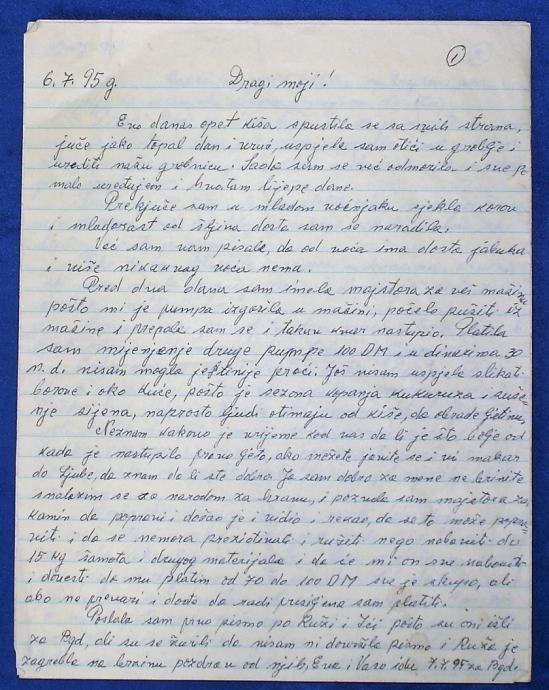 1
6.7.95 g. Dragi moji!
Evo danas opet kiša spustila se sa svih strana,
juče jako topal dan i vruć, uspjela sam otići u groblje i
urediti našu grobnicu. Sada sam se već odmorila i sve po
malo uređujem i hvatam lijepe dane.
Prekjuče sam u mladom voćnjaku sjekla korov
i mladorast od šljiva dosta sam se naradila.
Već sam vam pisala, da od voća ima dosta jabuka
i više nikakvog voća nema.
Pred dva dana sam imala majstora za veš mašinu
pošto mi je pumpa izgorila u mašini, počelo pušiti iz
mašine i prepala sam se i takav kvar nastupio. Platila
sam mijenjanje druge pumpe 100 DM i u dinarima 30
n.d. nisam mogla jeftinije proći. Još nisam uspjela slikati
borove i oko kuće, pošto je sezona kopanja kukuruza i suše-
nje sijena, naprosto ljudi otimaju od kiše, da obrade ljetinu,
Neznam kakovo je vrijeme kod vas da li je što bolje od
kada je nastupilo pravo ljeto, ako možete javite se i vi makar
do Ljube, da znam da li ste dobro. Ja sam dobro za mene ne brinite
snalazim se za narodom za hranu, i pozvala sam majstora za
kamin da popravi i došao je i vidio i rekao, da se to može popra-
viti i da se nemora prezidivati i rušiti nego nabaviti do
15 kg šamota i drugog materijala i da će mi on sve nabaviti
i dovesti da mu platim od 70 do 100 DM sve je skupo, ali
ako ne prevari i dođe da radi prisiljena sam platiti.
Poslala sam prvo pismo po Ruži i pošto su oni išli
za Bgd, ali su se žurili da nisam ni dovršila pismo i Ruža je
na brzinu pozdrav od njih, Eva i Vaso idu 7.7.95 za Bgd.